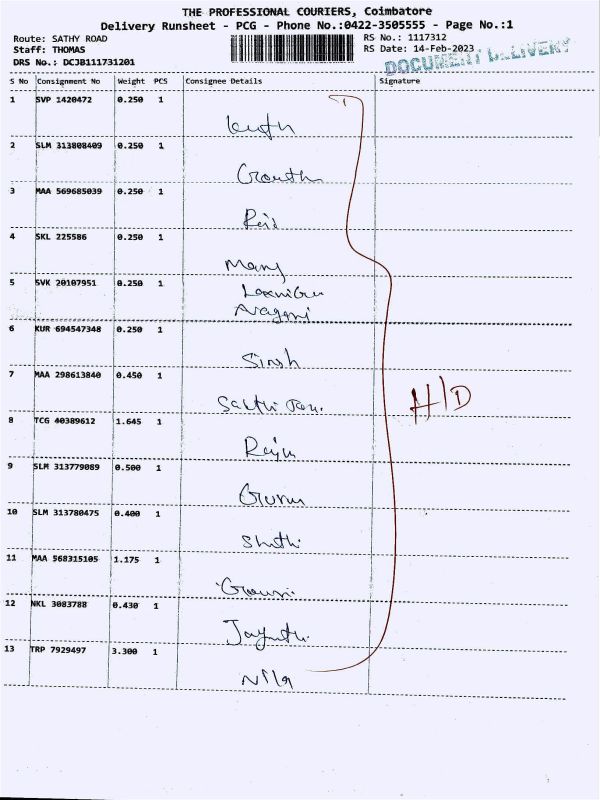 THE PROFESSIONAL COURIERS, Coimbatore
Delivery Runsheet - PCG - Phone No.:0422-3505555 - Page No.:1
Route: SATHY ROAD
Staff: THOMAS
DRS No.: DCJB111731201
RS No.: 1117312
RS Date: 14-Feb-2023
DOCUMENT DELIVERY
S No Consignment No Weight PCS Consignee Details Signature
1 SVP 1420472 0.250 1
2 SLM 313808409 0.250 1
Gouth
3 MAA 569685039 0.250 1
4 SKL 225586 0.250 1
Many
5 SVK 20107951 0.250 1
6 KUR 694547348 0.250 1
Singh
7 MAA 298613840 0.450 1
Sakthi
8 TCG 40389612 1.645 1
Raju
9 SLM 313779089 0.500 1
Guru
10 SLM 313780475 0.400 1
Shathi
11 MAA 568315105 1.175 1
Gowri
12 NKL 3083788 0.430 1
Jayanthi
13 TRP 7929497 3.300 1
Nila
H/D